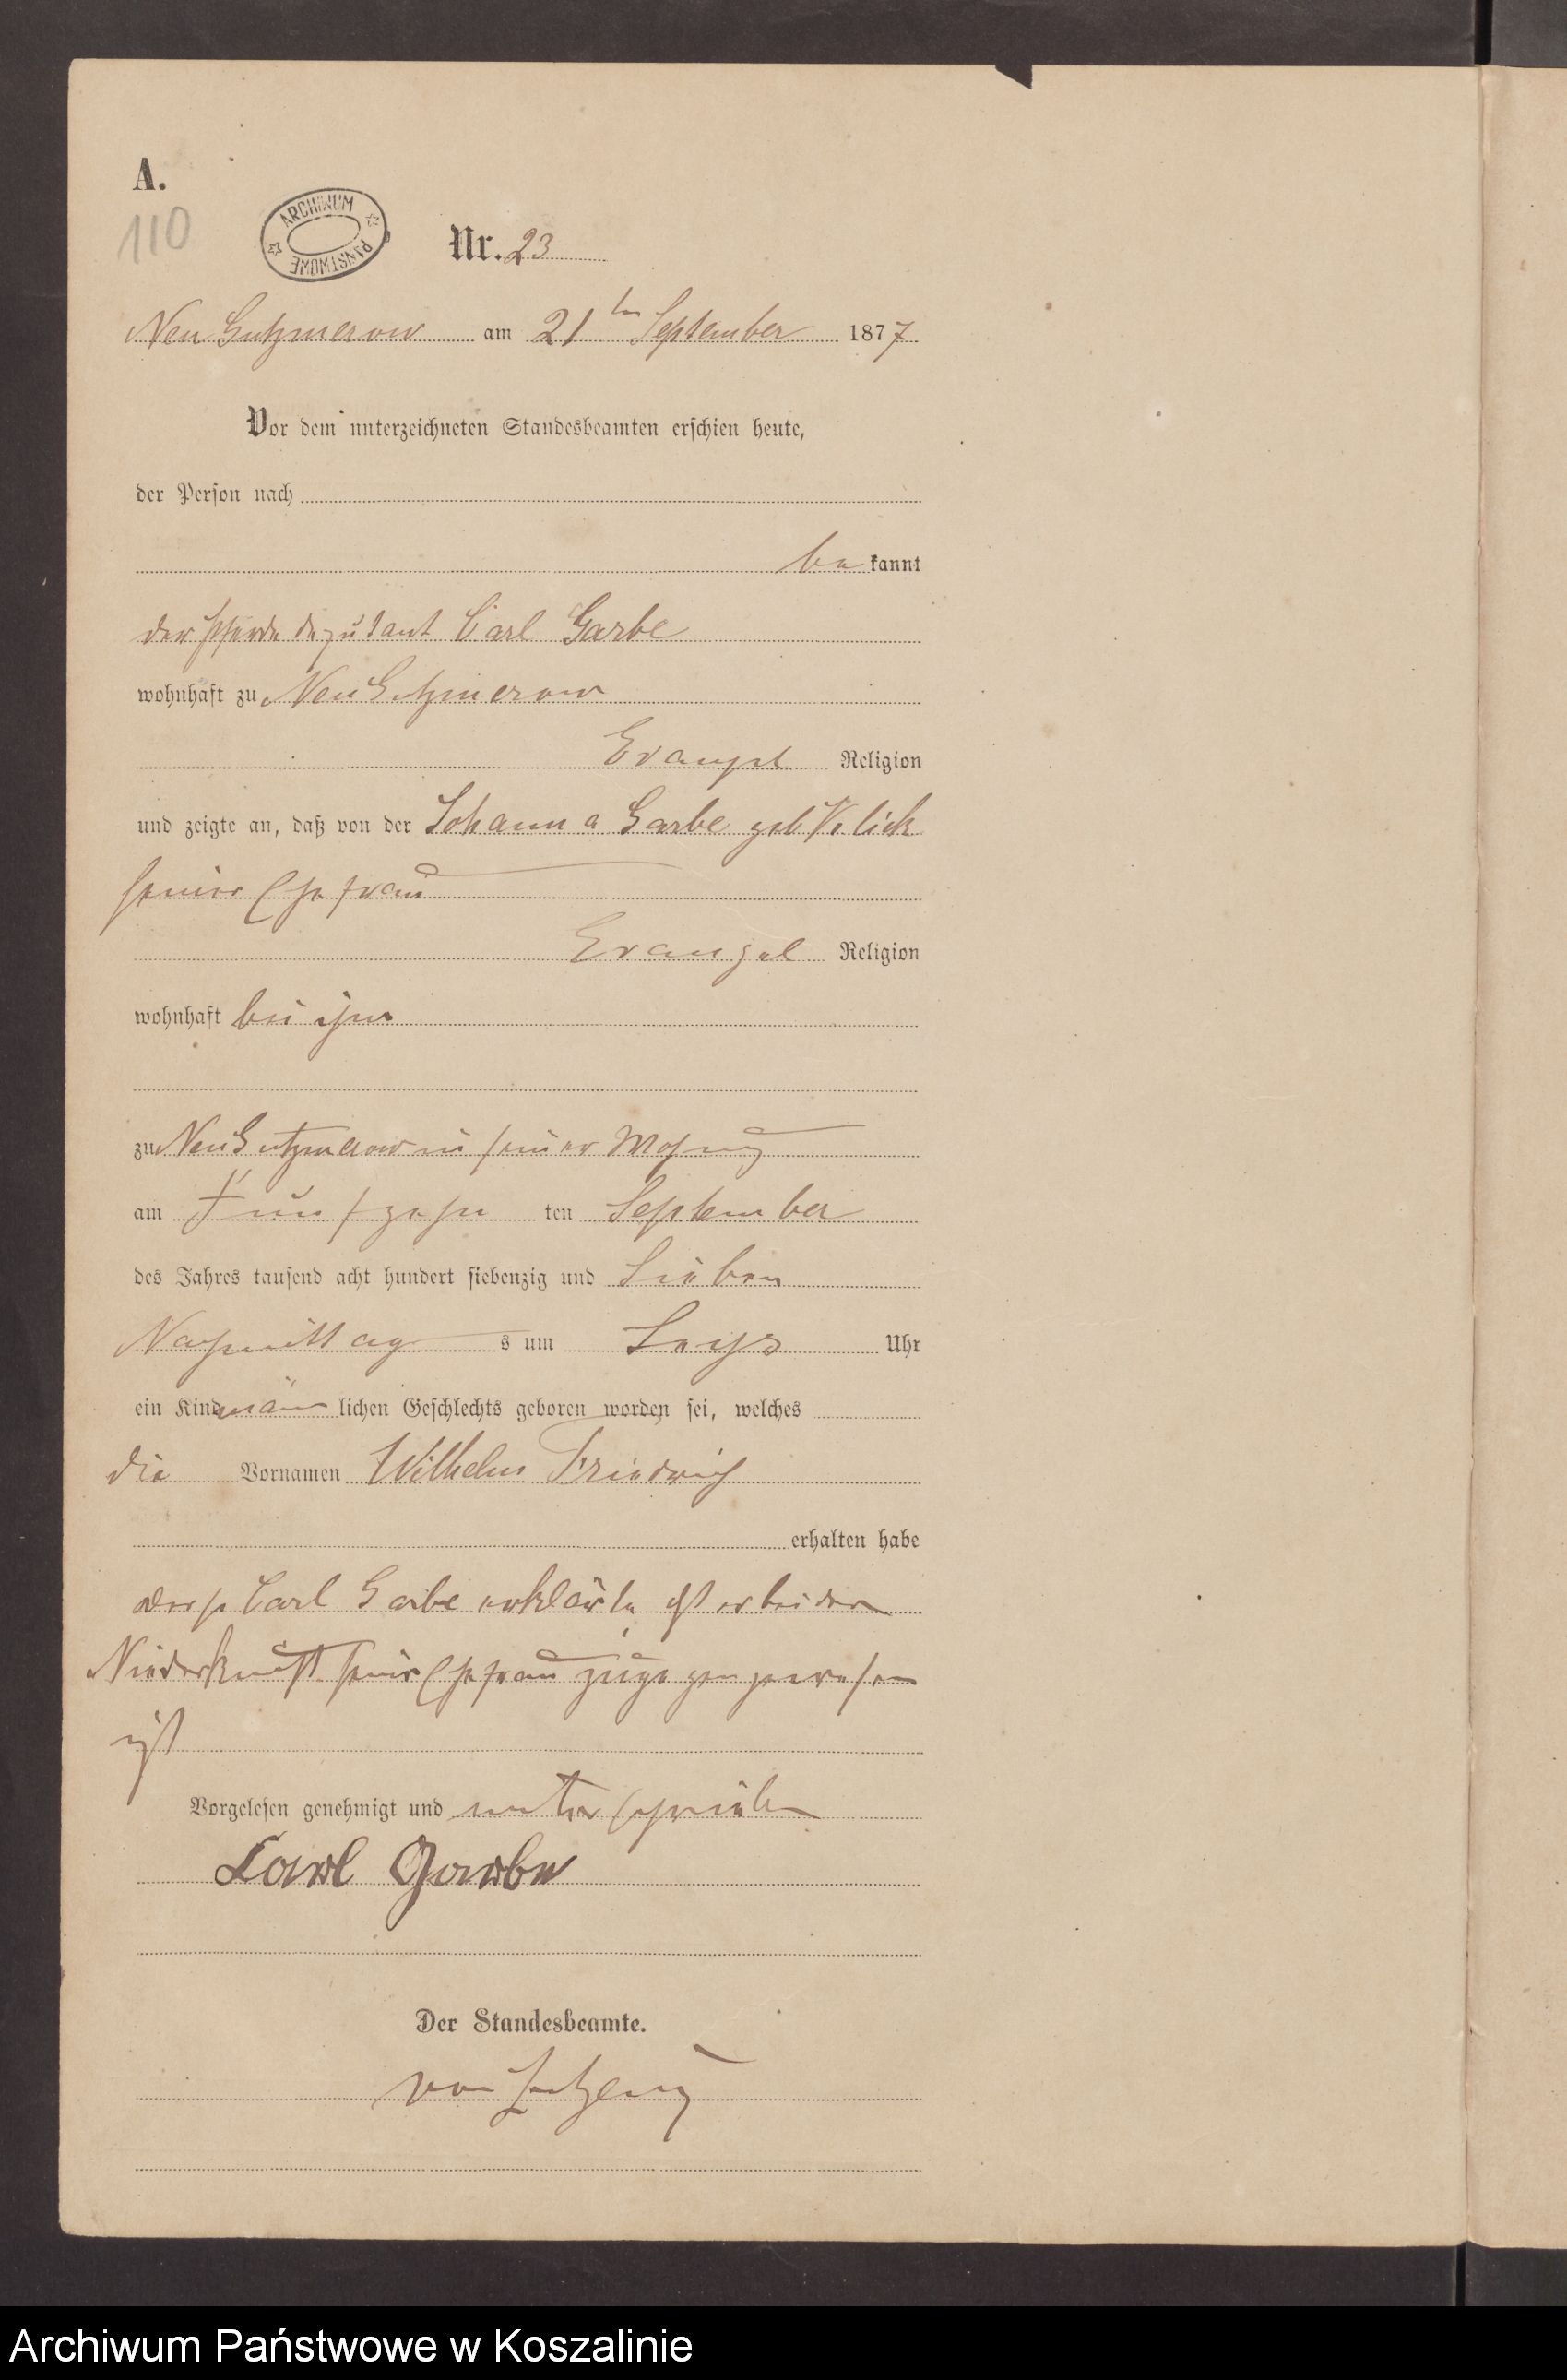 A.
110
ARCHIWUM PAŃSTWOWE
Nr. 23
Neu Gutzmerow am 21ten September 1877
Vor dem unterzeichneten Standesbeamten erschien heute,
der Person nach
be kannt
der Pferdedeputant Carl Garbe
wohnhaft zu Neu Gutzmerow
Evangel Religion
und zeigte an, daß von der Johanna Garbe geb
seiner Ehefrau
Evangel Religion
wohnhaft bei ihm
zu Neu Gutzmerow in seiner Wohnung
am Fünfzehn ten September
des Jahres tausend acht hundert siebenzig und Sieben
Nachmittag s um Sechs Uhr
ein Kind männ lichen Geschlechts geboren worden sei, welches
die Vornamen Wilhelm Friedrich
erhalten habe
Carl Garbe erklärte er bei der
Niederkunft seiner Ehefrau zugegen gewesen
ist
Vorgelesen genehmigt und unterschrieben
Carl Garbe
Der Standesbeamte.
von
Archiwum Państwowe w Koszalinie